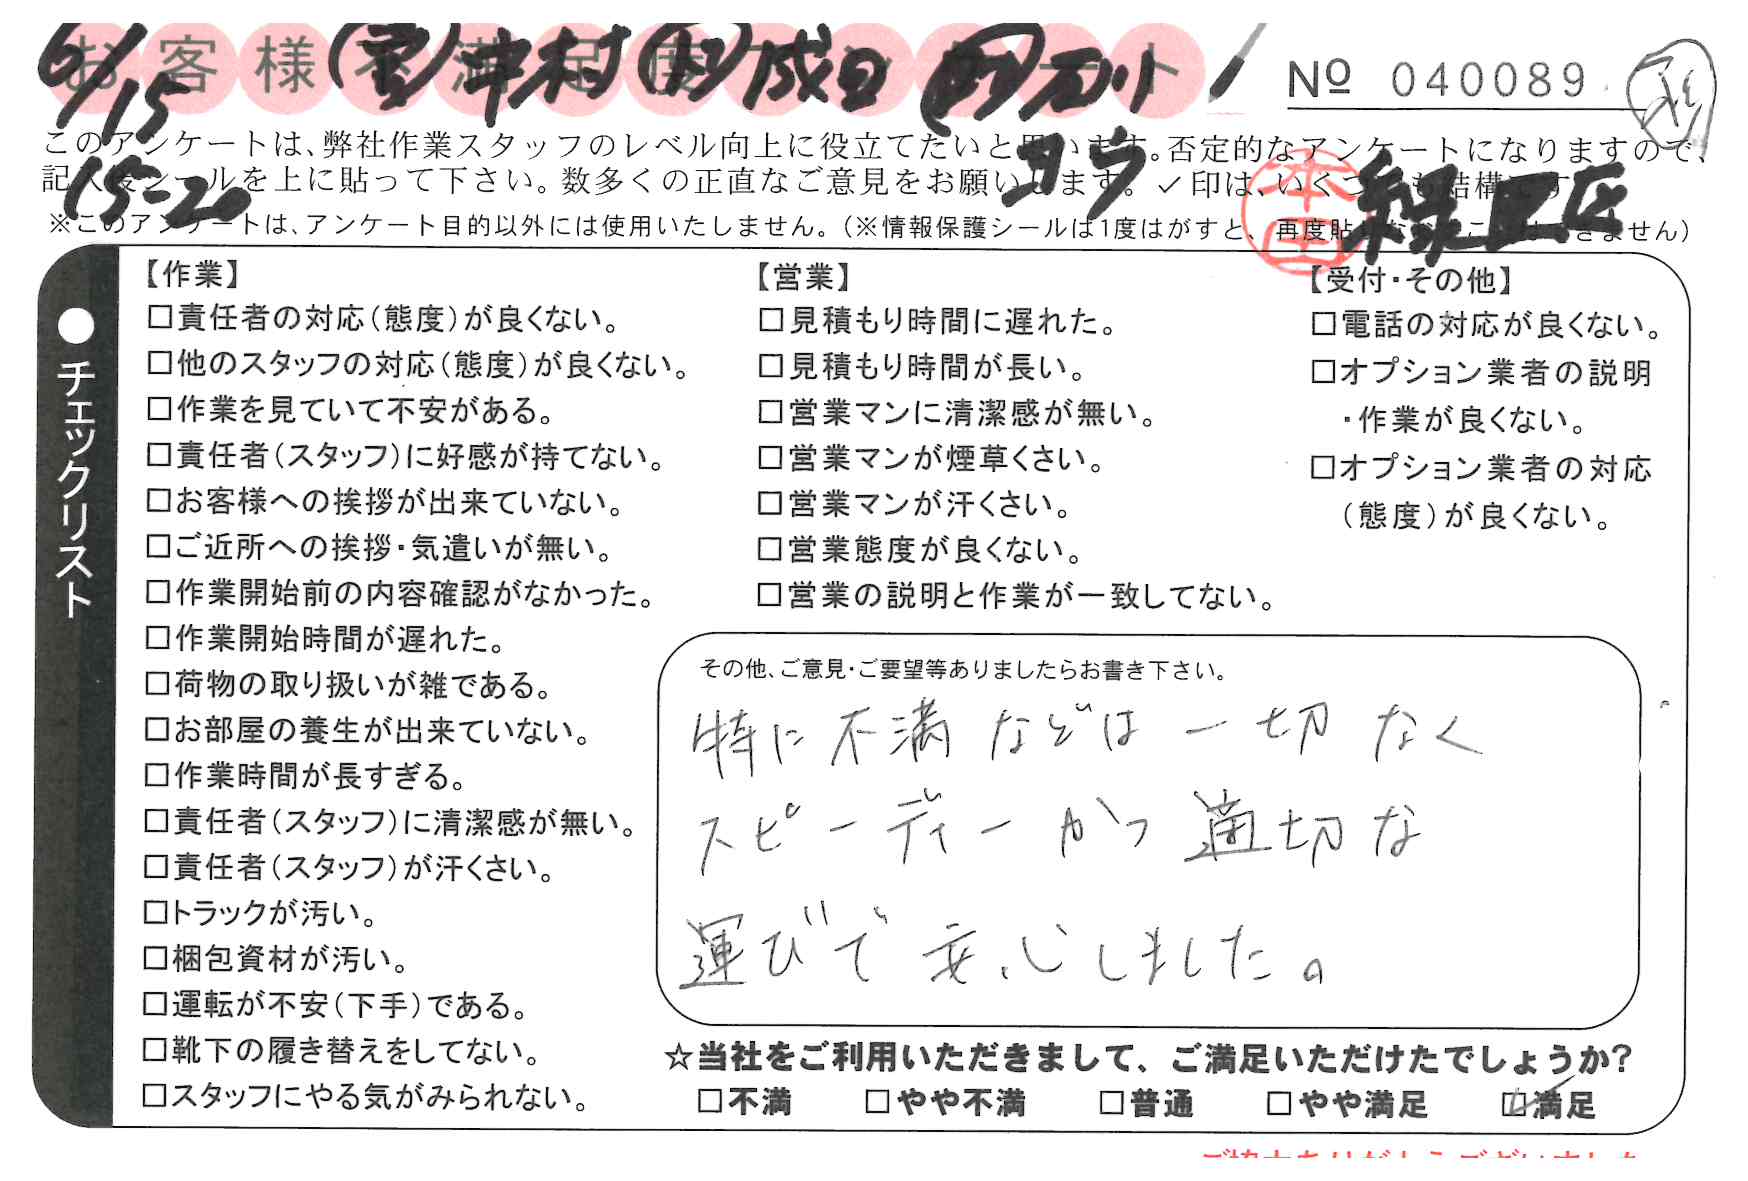 お客様不満足度アンケート
6/15
15-20
井村
成日
石川
ヨウ
緑区
本田
№ 040089
このアンケートは、弊社作業スタッフのレベル向上に役立てたいと思います。否定的なアンケートになりますので、
記入後シールを上に貼って下さい。数多くの正直なご意見をお願いします。✓印は、いくつでも結構です
※このアンケートは、アンケート目的以外には使用いたしません。(※情報保護シールは1度はがすと、再度貼りなおすことはできません)
●チェックリスト
【作業】
□責任者の対応(態度)が良くない。
□他のスタッフの対応(態度)が良くない。
□作業を見ていて不安がある。
□責任者(スタッフ)に好感が持てない。
□お客様への挨拶が出来ていない。
□ご近所への挨拶・気遣いが無い。
□作業開始前の内容確認がなかった。
□作業開始時間が遅れた。
□荷物の取り扱いが雑である。
□お部屋の養生が出来ていない。
□作業時間が長すぎる。
□責任者(スタッフ)に清潔感が無い。
□責任者(スタッフ)が汗くさい。
□トラックが汚い。
□梱包資材が汚い。
□運転が不安(下手)である。
□靴下の履き替えをしてない。
□スタッフにやる気がみられない。
【営業】
□見積もり時間に遅れた。
□見積もり時間が長い。
□営業マンに清潔感が無い。
□営業マンが煙草くさい。
□営業マンが汗くさい。
□営業態度が良くない。
□営業の説明と作業が一致してない。
【受付・その他】
□電話の対応が良くない。
□オプション業者の説明
・作業が良くない。
□オプション業者の対応
(態度)が良くない。
その他、ご意見・ご要望等ありましたらお書き下さい。
特に不満などは一切なく
スピーディーかつ適切な
運びで安心しました。
☆当社をご利用いただきまして、ご満足いただけたでしょうか?
□不満 □やや不満 □普通 □やや満足 ☑満足
ご協力ありがとうございました